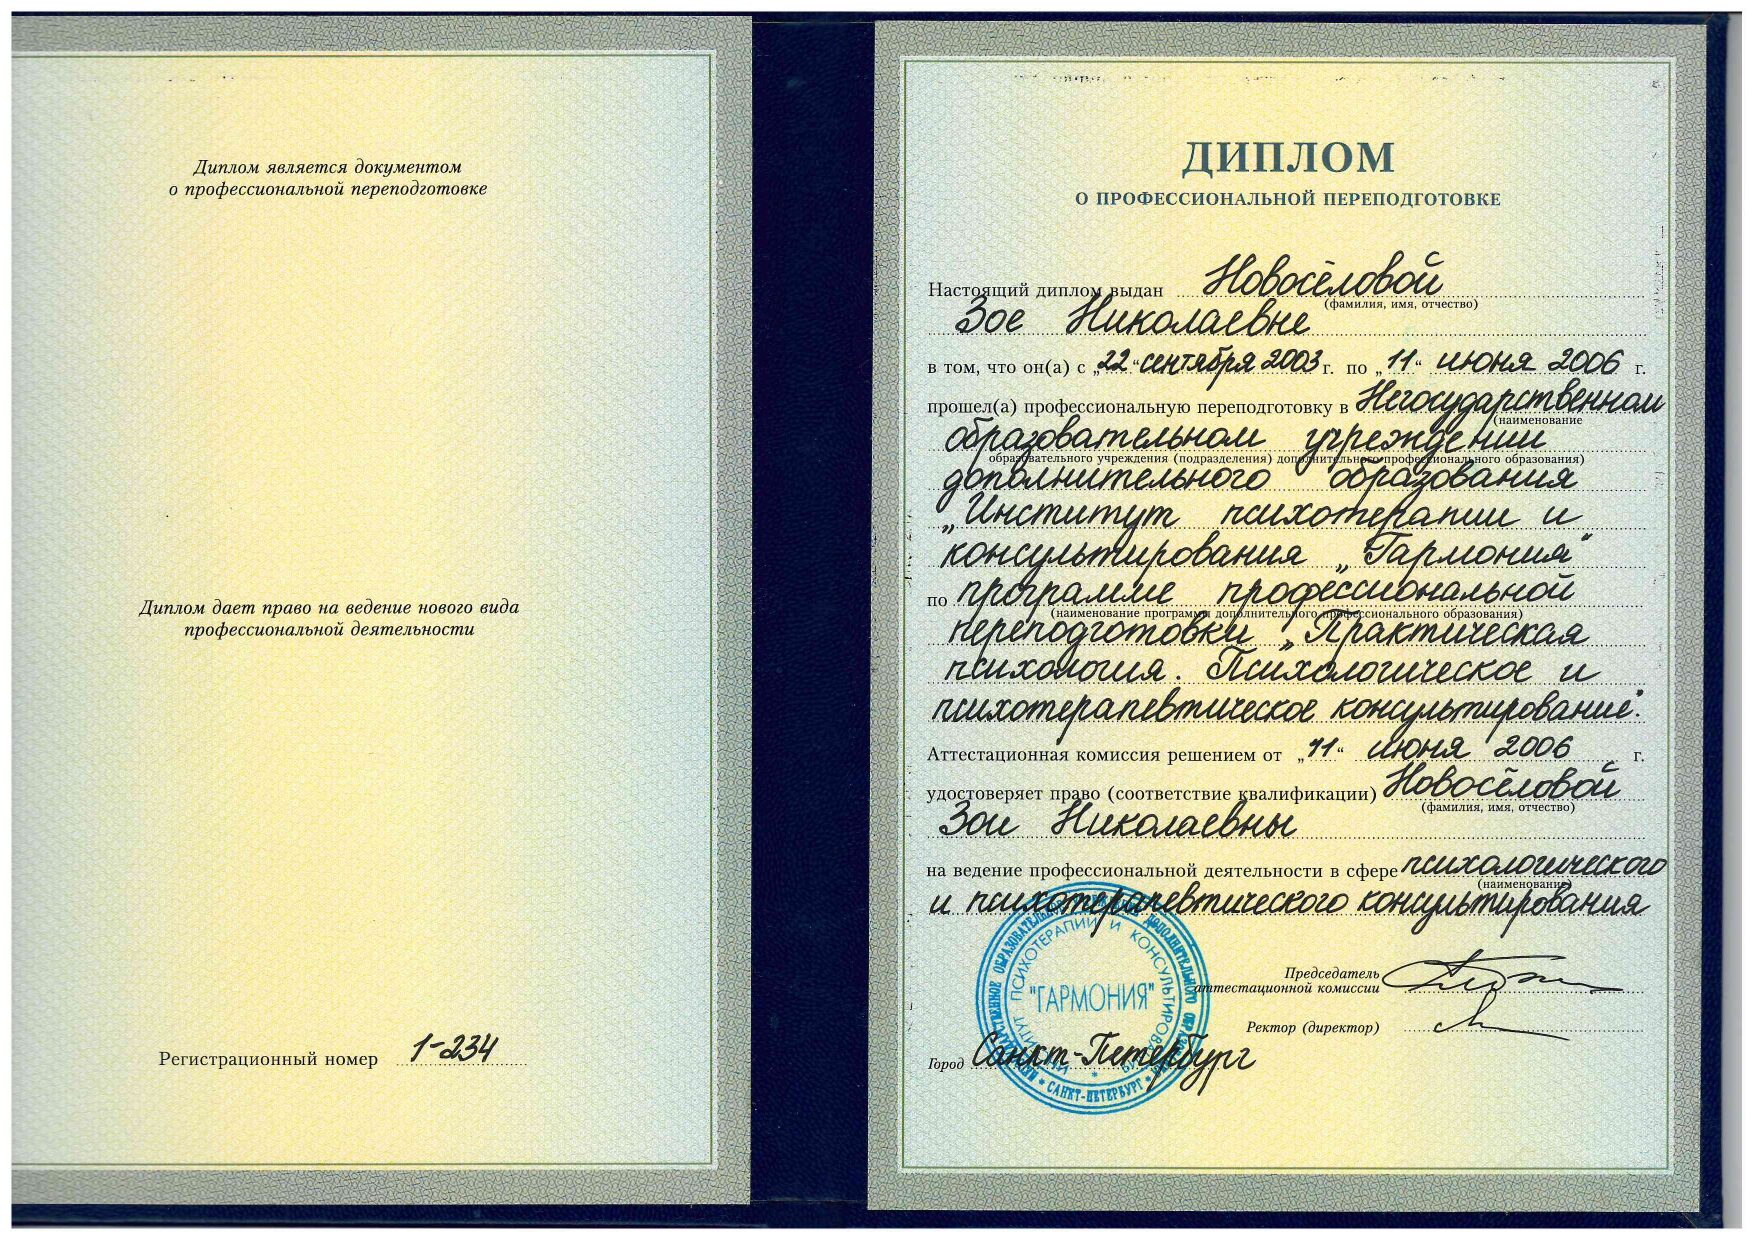 Диплом является документом
о профессиональной переподготовке
Диплом дает право на ведение нового вида
профессиональной деятельности
Регистрационный номер 1-234
ДИПЛОМ
О ПРОФЕССИОНАЛЬНОЙ ПЕРЕПОДГОТОВКЕ
Настоящий диплом выдан Новосёловой
(фамилия, имя, отчество)
Зое Николаевне
в том, что он(а) с „22“ сентября 2003 г. по „11“ июня 2006 г.
прошел(а) профессиональную переподготовку в Негосударственном
(наименование
образовательном учреждении
образовательного учреждения (подразделения) дополнительного профессионального образования)
дополнительного образования
„Институт психотерапии и
консультирования „Гармония“
по программе профессиональной
(наименование программы дополнительного профессионального образования)
переподготовки „Практическая
психология. Психологическое и
психотерапевтическое консультирование“.
Аттестационная комиссия решением от „11“ июня 2006 г.
удостоверяет право (соответствие квалификации) Новосёловой
(фамилия, имя, отчество)
Зои Николаевны
на ведение профессиональной деятельности в сфере психологического
(наименование)
и психотерапевтического консультирования
Председатель
аттестационной комиссии
Ректор (директор)
Город Санкт-Петербург
"ГАРМОНИЯ"
ИНСТИТУТ ПСИХОТЕРАПИИ И КОНСУЛЬТИРОВАНИЯ
* САНКТ-ПЕТЕРБУРГ *